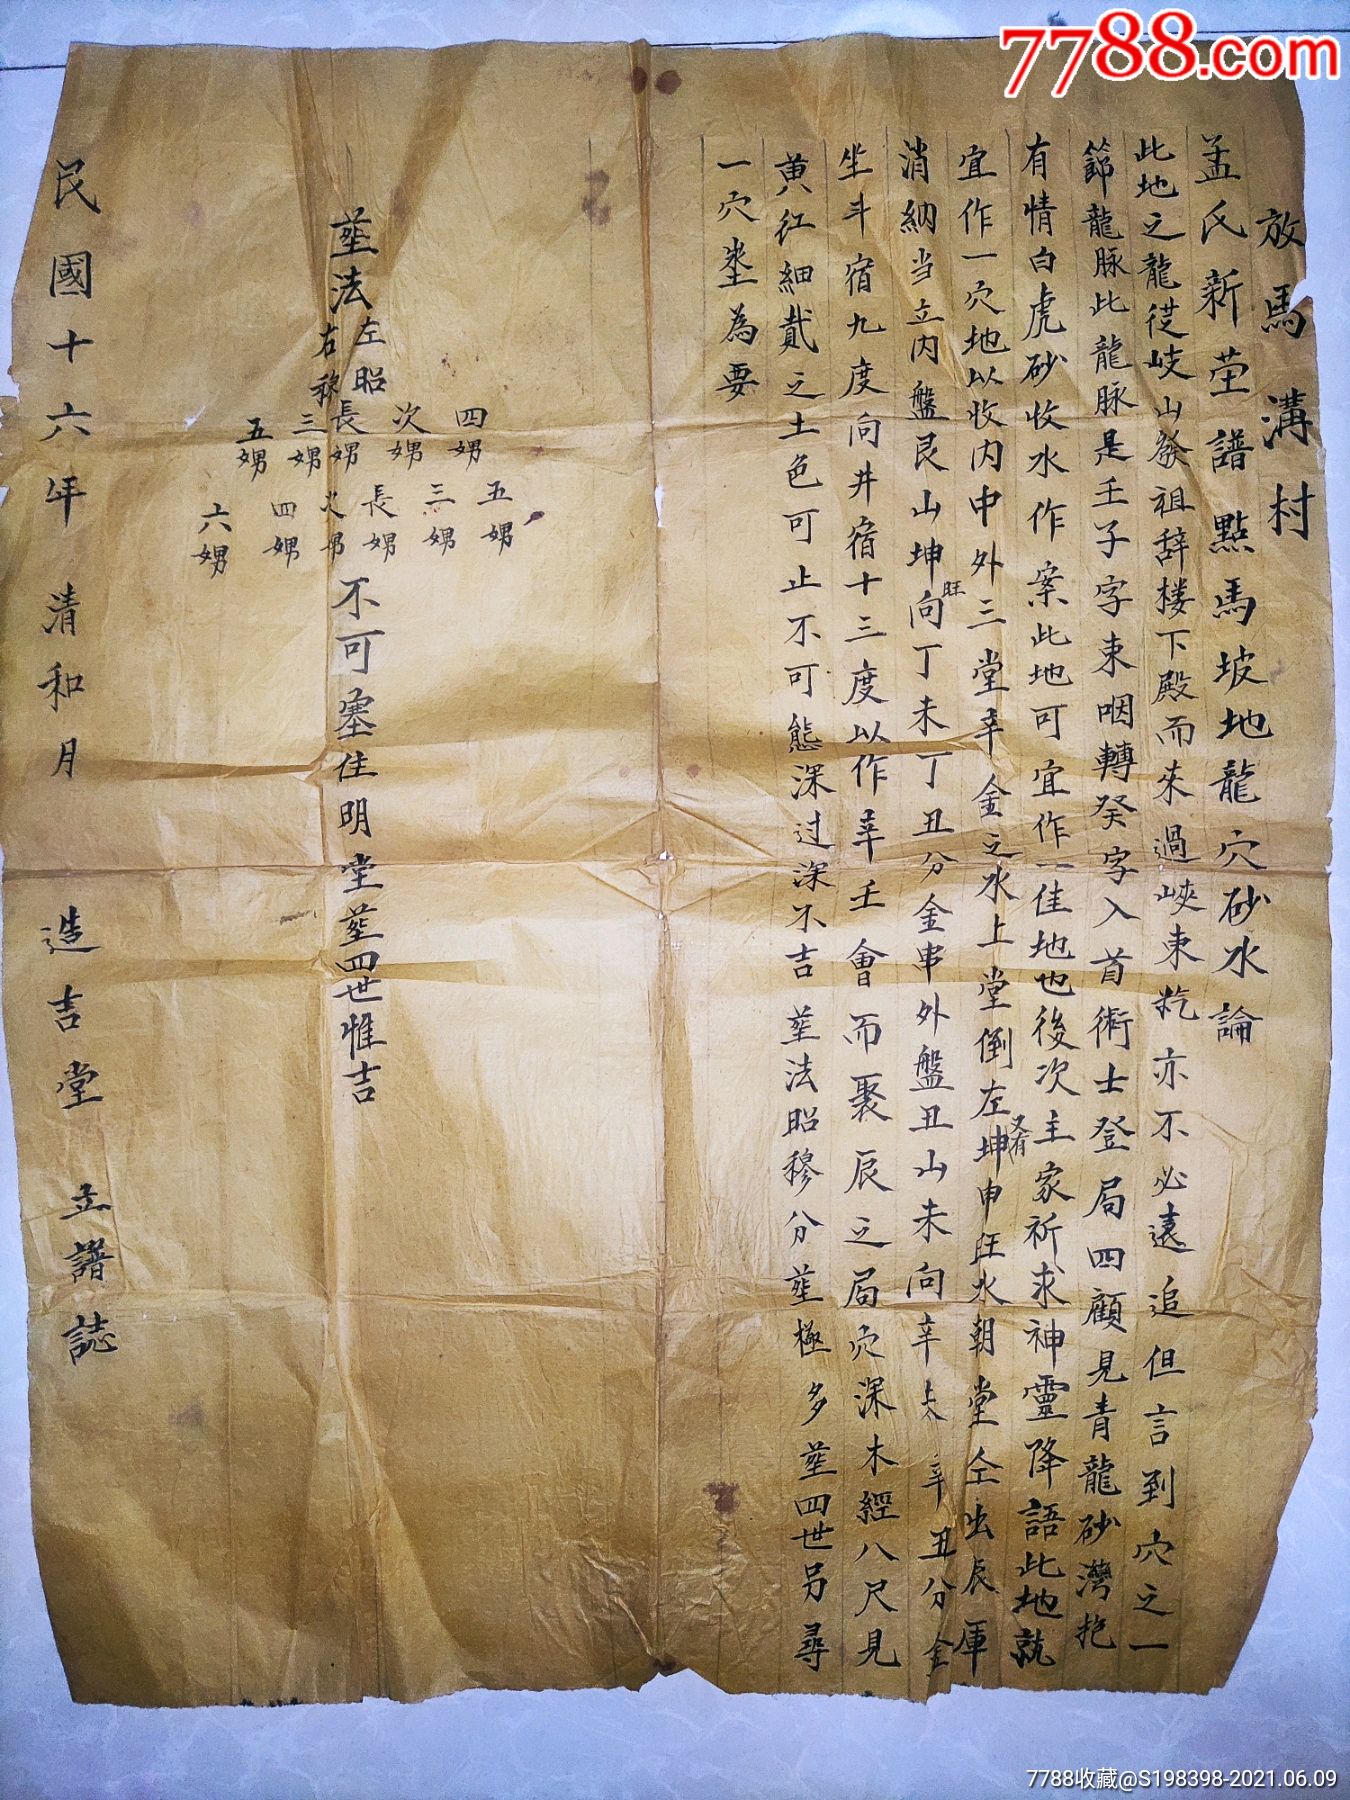 7788.com
放馬溝村
孟氏新茔譜點馬坡地龍穴砂水論
此地之龍從岐山發祖辞楼下殿而來過峽束粎亦不必遠追但言到穴之一
節龍脉此龍脉是壬子字束咽轉癸字入首術士登局四顧見青龍砂灣抱
有情白虎砂收水作案此地可宜作一佳地也後次主家祈求神靈降語此地就
宜作一穴地以收内申外三堂辛金之水上堂倒左坤申旺水朝堂仝出辰庫
又有
消納当立内盤艮山坤向丁未丁丑分金串外盤丑山未向辛未辛丑分金
旺
坐斗宿九度向井宿十三度以作辛壬會而聚辰之局穴深木經八尺見
黄红細貳之土色可止不可態深过深不吉葬法昭穆分葬極多葬四世另尋
一穴塟為要
葬法
左昭
右穆
四娚 次娚 長娚 三娚 五娚
五娚 三娚 長娚 次娚 四娚 六娚
不可塞住明堂葬四世惟吉
民國十六年清和月 造吉堂 立譜誌
7788收藏@S198398-2021.06.09